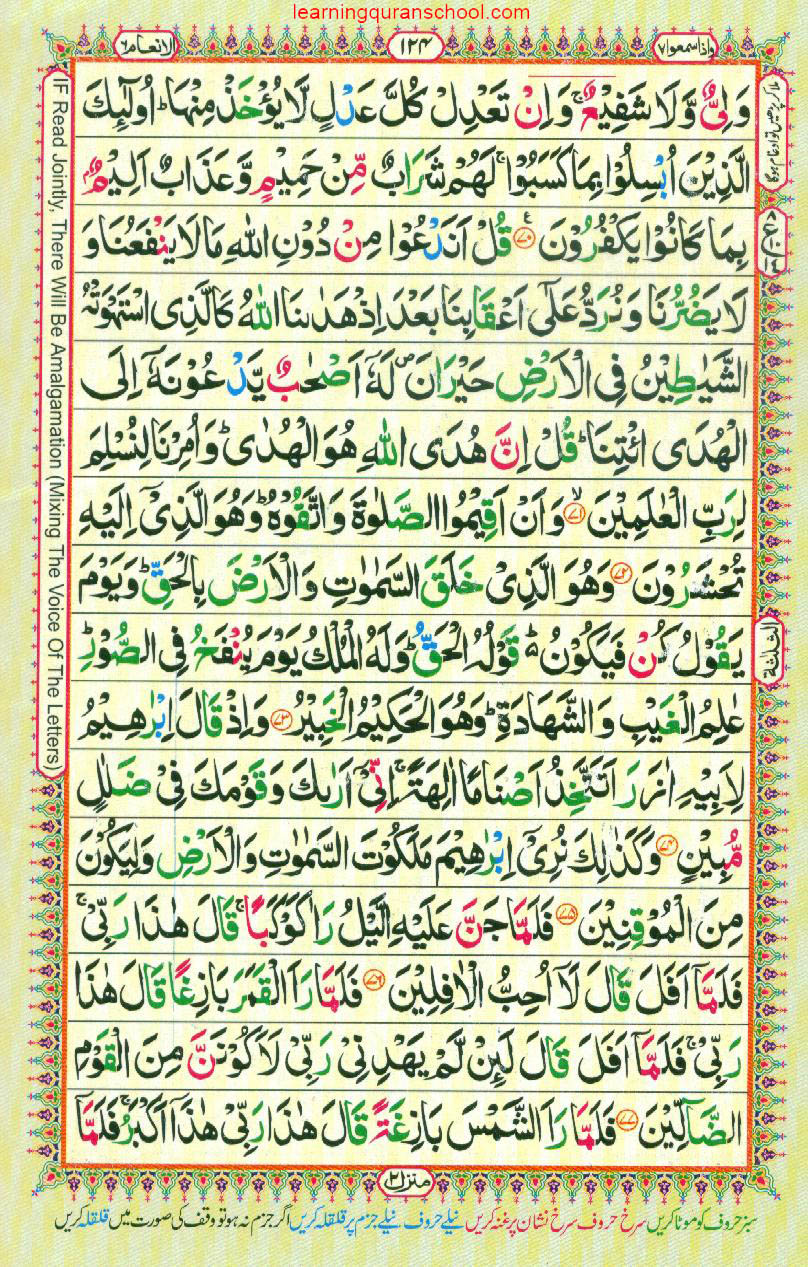 learningquranschool.com
واذاسمعوا۷
۱۲۴
الانعام۶
وَلِیٌّ وَّلَا شَفِیْعٌ ۚ وَاِنْ تَعْدِلْ كُلَّ عَدْلٍ لَّا یُؤْخَذْ مِنْهَا ؕ اُولٰٓئِكَ
الَّذِیْنَ اُبْسِلُوْا بِمَا كَسَبُوْا ۚ لَهُمْ شَرَابٌ مِّنْ حَمِیْمٍ وَّعَذَابٌ اَلِیْمٌۢ
بِمَا كَانُوْا یَكْفُرُوْنَ ﴿۷۰﴾ قُلْ اَنَدْعُوْا مِنْ دُوْنِ اللّٰهِ مَا لَا یَنْفَعُنَا وَ
لَا یَضُرُّنَا وَنُرَدُّ عَلٰۤی اَعْقَابِنَا بَعْدَ اِذْ هَدٰىنَا اللّٰهُ كَالَّذِی اسْتَهْوَتْهُ
الشَّیٰطِیْنُ فِی الْاَرْضِ حَیْرَانَ ۪ لَهٗۤ اَصْحٰبٌ یَّدْعُوْنَهٗۤ اِلَی
الْهُدَی ائْتِنَا ؕ قُلْ اِنَّ هُدَی اللّٰهِ هُوَ الْهُدٰی ؕ وَاُمِرْنَا لِنُسْلِمَ
لِرَبِّ الْعٰلَمِیْنَ ۙ﴿۷۱﴾ وَاَنْ اَقِیْمُوا الصَّلٰوةَ وَاتَّقُوْهُ ؕ وَهُوَ الَّذِیْۤ اِلَیْهِ
تُحْشَرُوْنَ ﴿۷۲﴾ وَهُوَ الَّذِیْ خَلَقَ السَّمٰوٰتِ وَالْاَرْضَ بِالْحَقِّ ؕ وَیَوْمَ
یَقُوْلُ كُنْ فَیَكُوْنُ ۬ؕ قَوْلُهُ الْحَقُّ ؕ وَلَهُ الْمُلْكُ یَوْمَ یُنْفَخُ فِی الصُّوْرِ ؕ
عٰلِمُ الْغَیْبِ وَالشَّهَادَةِ ؕ وَهُوَ الْحَكِیْمُ الْخَبِیْرُ ﴿۷۳﴾ وَاِذْ قَالَ اِبْرٰهِیْمُ
لِاَبِیْهِ اٰزَرَ اَتَتَّخِذُ اَصْنَامًا اٰلِهَةً ۚ اِنِّیْۤ اَرٰىكَ وَقَوْمَكَ فِیْ ضَلٰلٍ
مُّبِیْنٍ ﴿۷۴﴾ وَكَذٰلِكَ نُرِیْۤ اِبْرٰهِیْمَ مَلَكُوْتَ السَّمٰوٰتِ وَالْاَرْضِ وَلِیَكُوْنَ
مِنَ الْمُوْقِنِیْنَ ﴿۷۵﴾ فَلَمَّا جَنَّ عَلَیْهِ الَّیْلُ رَاٰ كَوْكَبًا ۚ قَالَ هٰذَا رَبِّیْ ۚ
فَلَمَّاۤ اَفَلَ قَالَ لَاۤ اُحِبُّ الْاٰفِلِیْنَ ﴿۷۶﴾ فَلَمَّا رَاَ الْقَمَرَ بَازِغًا قَالَ هٰذَا
رَبِّیْ ۚ فَلَمَّاۤ اَفَلَ قَالَ لَئِنْ لَّمْ یَهْدِنِیْ رَبِّیْ لَاَكُوْنَنَّ مِنَ الْقَوْمِ
الضَّآلِّیْنَ ﴿۷۷﴾ فَلَمَّا رَاَ الشَّمْسَ بَازِغَةً قَالَ هٰذَا رَبِّیْ هٰذَاۤ اَكْبَرُ ۚ فَلَمَّاۤ
الثلثة
IF Read Jointly, There Will Be Amalgamation (Mixing The Voice Of The Letters)
منزل۲
سبز حروف کو موٹا کریں سرخ حروف سرخ نشان پر غنہ کریں نیلے حروف نیلے جزم پر قلقلہ کریں اگر جزم نہ ہو تو وقف کی صورت میں قلقلہ کریں